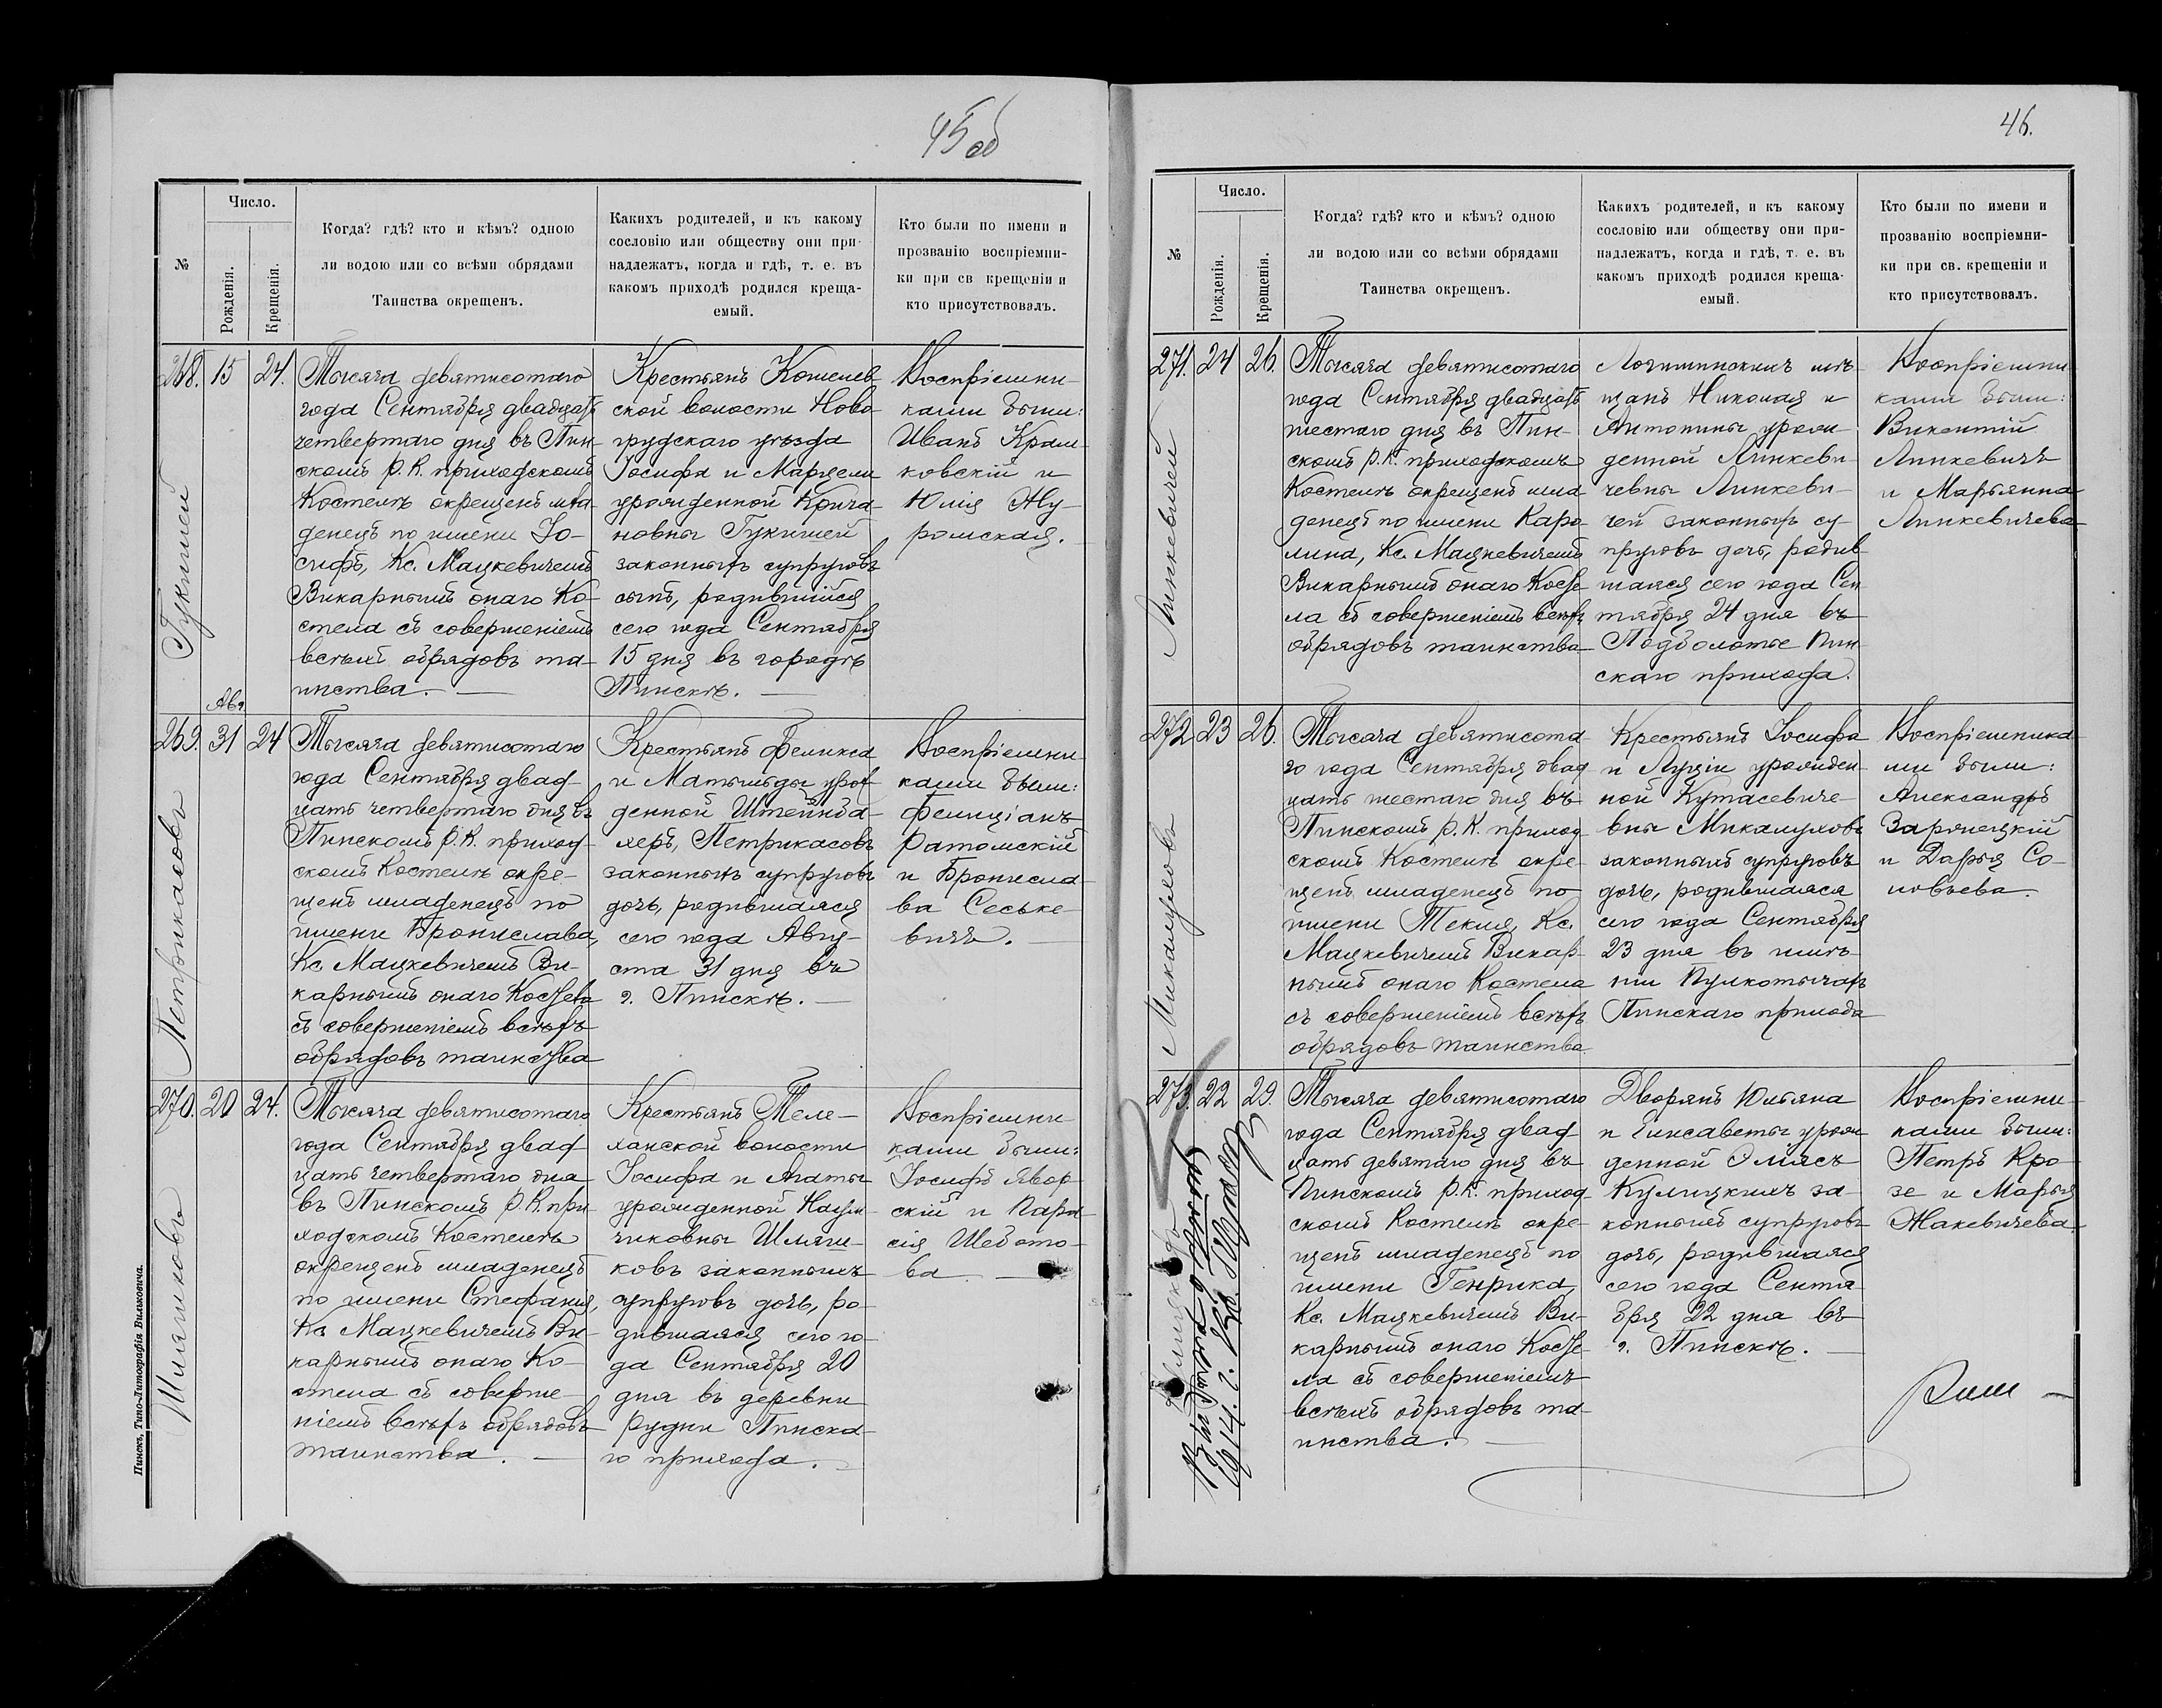 45 об
№
Число.
Рожденія.
Крещенія.
Когда? гдѣ? кто и кѣмъ? одною
ли водою или со всѣми обрядами
Таинства окрещенъ.
Какихъ родителей, и къ какому
сословію или обществу они при-
надлежатъ, когда и гдѣ, т. е. въ
какомъ приходѣ родился креща-
емый.
Кто были по имени и
прозванію воспріемни-
ки при св крещеніи и
кто присутствовалъ.
268. 15 24.
Тысяча девятисотаго
года Сентября двадцать
четвертаго дня въ Пин-
скомъ Р. К. приходскомъ
Костелѣ окрещенъ мла-
денецъ по имени Іо-
сифъ, Кс. Мацкевичемъ
Викарнымъ онаго Ко-
стела съ совершеніемъ
всѣхъ обрядовъ та-
инства.
Крестьянъ Кошелев-
ской волости Ново-
грудскаго уѣзда
Іосифа и Марцели
урожденной Крича-
новны Гукишей
законныхъ супруговъ
сынъ, родившійся
сего года Сентября
15 дня въ городѣ
Пинскѣ.
Воспріемни-
ками были:
Иванъ Крам-
ковскій и
Юлія Жу-
ромская.
Гукишей
Авг.
269. 31 24
Тысяча девятисотаго
года Сентября двад-
цать четвертаго дня въ
Пинскомъ Р. К. приход-
скомъ Костелѣ окре-
щенъ младенецъ по
имени Бронислава,
Кс. Мацкевичемъ Ви-
карнымъ онаго Костела
съ совершеніемъ всѣхъ
обрядовъ таинства
Крестьянъ Феликса
и Матыльды урож-
денной Штейнба-
херъ, Петрикасовъ
законныхъ супруговъ
дочь, родившаяся
сего года Авгу-
ста 31 дня въ
г. Пинскѣ.
Воспріемни-
ками были:
Фелиціанъ
Ратомскій
и Бронисла-
ва Сеське-
вичъ.
Петрикасовъ
270. 20 24.
Тысяча девятисотаго
года Сентября двад-
цать четвертаго дня
въ Пинскомъ Р. К. при-
ходскомъ Костелѣ
окрещенъ младенецъ
по имени Стефанія,
Кс. Мацкевичемъ Ви-
карнымъ онаго Ко-
стела съ соверше-
ніемъ всѣхъ обрядовъ
таинства.
Крестьянъ Теле-
ханской волости
Іосифа и Агаты
урожденной Наум-
чиковны Шляхи-
ковъ законныхъ
супруговъ дочь, ро-
дившаяся сего го-
да Сентября 20
дня въ деревни
Рудни Пинска-
го прихода.
Воспріемни-
ками были:
Іосифъ Явор-
скій и Пара-
сія Шебото-
ва
Пинскъ, Типо-Литографія Вильковича.
46.
№
Число.
Рожденія.
Крещенія.
Когда? гдѣ? кто и кѣмъ? одною
ли водою или со всѣми обрядами
Таинства окрещенъ.
Какихъ родителей, и къ какому
сословію или обществу они при-
надлежатъ, когда и гдѣ, т. е. въ
какомъ приходѣ родился креща-
емый.
Кто были по имени и
прозванію воспріемни-
ки при св. крещеніи и
кто присутствовалъ.
271. 24 26.
Тысяча девятисотаго
года Сентября двадцать
шестаго дня въ Пин-
скомъ Р. К. приходскомъ
Костелѣ окрещенъ мла-
денецъ по имени Каро-
лина, Кс. Мацкевичемъ
Викарнымъ онаго Косте-
ла съ совершеніемъ всѣхъ
обрядовъ таинства
Логишинскихъ мѣ-
щанъ Николая и
Антонины урож-
денной Линкеви-
чевны Линкеви-
чей законныхъ су-
пруговъ дочь, родив-
шаяся сего года Сен-
тября 24 дня въ
Подболотье Пин-
скаго прихода.
Воспріемни-
ками были:
Викентій
Линкевичъ
и Марьянна
Линкевичева
Линкевичей
272 23 26.
Тысяча девятисота-
го года Сентября двад-
цать шестаго дня въ
Пинскомъ Р. К. приход-
скомъ Костелѣ окре-
щенъ младенецъ по
имени Текля, Кс.
Мацкевичемъ Викар-
нымъ онаго Костела
съ совершеніемъ всѣхъ
обрядовъ таинства
Крестьянъ Іосифа
и Луціи урожден-
ной Кутасевиче-
вны Микалуховъ
законныхъ супруговъ
дочь, родившаяся
сего года Сентября
23 дня въ имѣ-
ніи Пулкотычахъ
Пинскаго прихода
Воспріемника-
ми были:
Александръ
Зарѣцкій
и Дарья Со-
ловьева.
Микалуховъ
273. 22 29.
Тысяча девятисотаго
года Сентября двад-
цать девятаго дня въ
Пинскомъ Р. К. приход-
скомъ Костелѣ окре-
щенъ младенецъ по
имени Генрика,
Кс. Мацкевичемъ Ви-
карнымъ онаго Косте-
ла съ совершеніемъ
всѣхъ обрядовъ та-
инства.
Дворянъ Юльяна
и Елисаветы урож-
денной Олѣясъ
Кулицкихъ за-
конныхъ супруговъ
дочь, родившаяся
сего года Сентя-
бря 22 дня въ
г. Пинскѣ.
Воспріемни-
ками были:
Петръ Кро-
зе и Марья
Жакевичева.
1914. г.